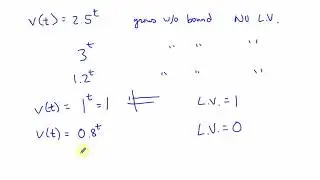 v(t) = 2.5^t grows w/o bound No L.V.
3^t " " "
1.2^t " " "
v(t) = 1^t = 1 L.V. = 1
v(t) = 0.8^t L.V. = 0